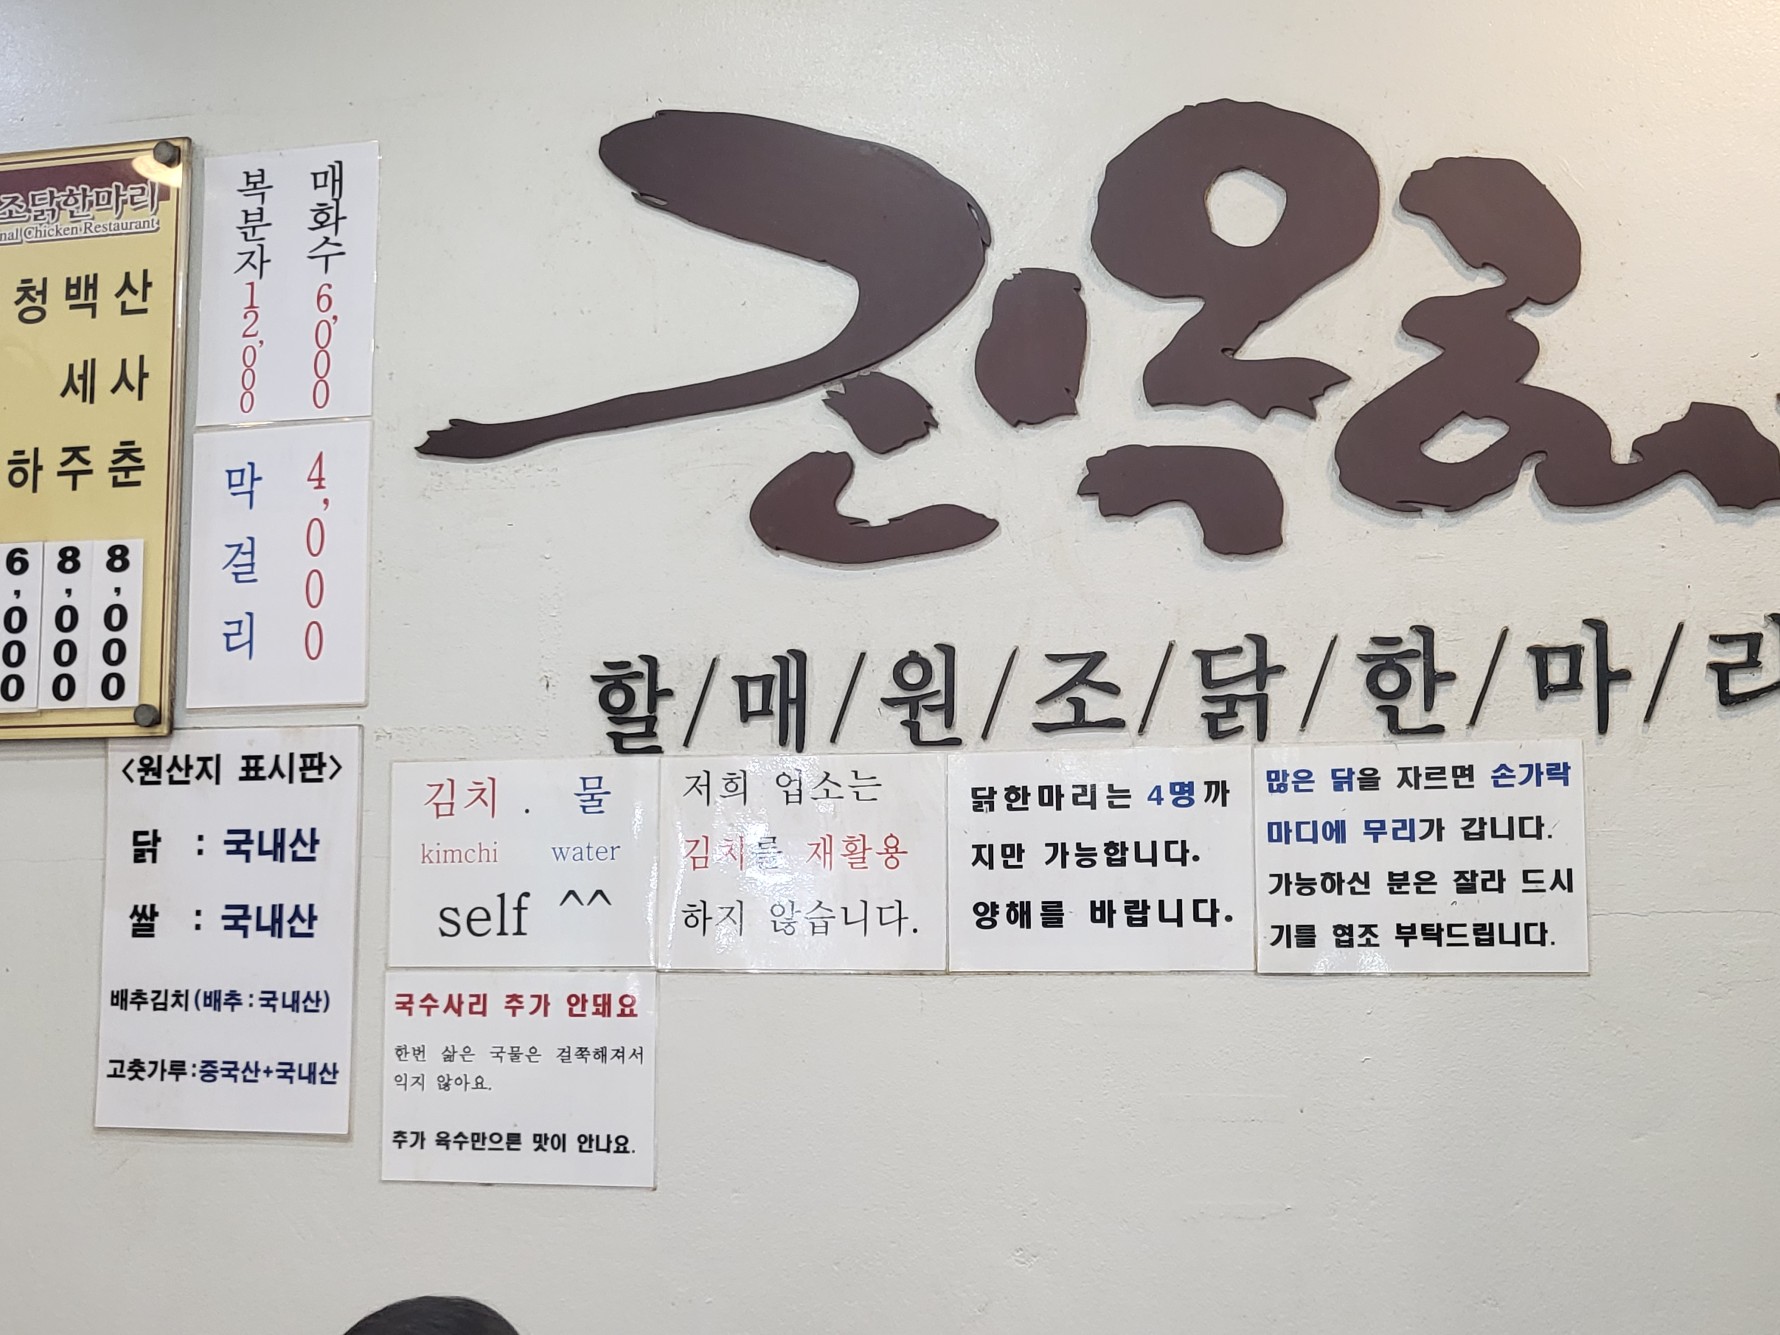 조닭한마리
nal Chicken Restaurant
산사춘 8,000
백세주 8,000
청하 6,000
매화수 6,000
복분자 12,000
막걸리
4,000
<원산지 표시판>
닭 : 국내산
쌀 : 국내산
배추김치(배추:국내산)
고춧가루:중국산+국내산
진옥화
할/매/원/조/닭/한/마/리
김치 . 물
kimchi water
self ^^
저희 업소는
김치를 재활용
하지 않습니다.
닭한마리는 4명까
지만 가능합니다.
양해를 바랍니다.
많은 닭을 자르면 손가락
마디에 무리가 갑니다.
가능하신 분은 잘라 드시
기를 협조 부탁드립니다.
국수사리 추가 안돼요
한번 삶은 국물은 걸쭉해져서
익지 않아요.
추가 육수만으론 맛이 안나요.